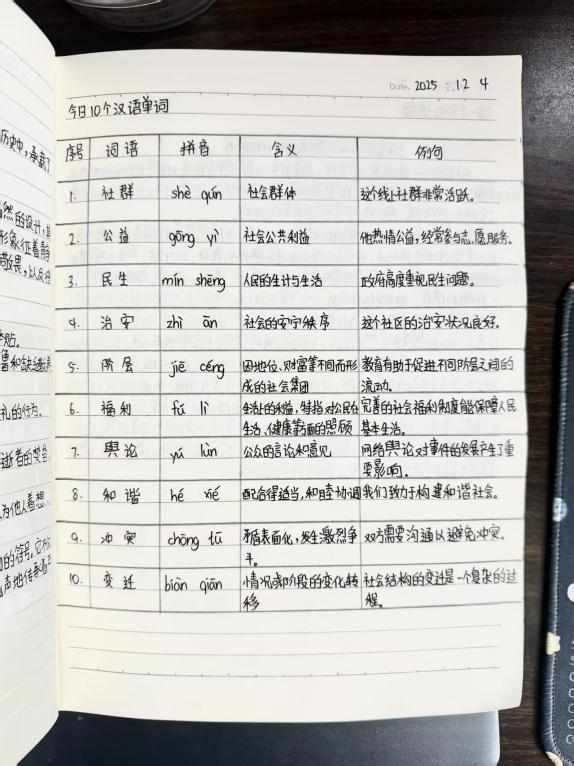 Date. 2025 12 4
今日10个汉语单词
序号 词语 拼音 含义 例句
1. 社群 shè qún 社会群体 这个线上社群非常活跃。
2. 公益 gōng yì 社会公共利益 他热情公益，经常参与志愿服务。
3. 民生 mín shēng 人民的生计与生活 政府高度重视民生问题。
4. 治安 zhì ān 社会的安宁秩序 这个社区的治安状况良好。
5. 阶层 jiē céng 因地位、财富等不同而形 教育有助于促进不同阶层之间的
成的社会集团 流动。
6. 福利 fú lì 生活上的利益，特指对公民在 完善的社会福利制度能保障人民
生活、健康等方面的照顾 基本生活。
7. 舆论 yú lùn 公众的言论和意见 网络舆论对事件的发展产生了重
要影响。
8. 和谐 hé xié 配合得适当，和睦协调 我们致力于构建和谐社会。
9. 冲突 chōng tū 矛盾表面化，发生激烈争 双方需要沟通以避免冲突。
斗。
10. 变迁 biàn qiān 情况或阶段的变化转 社会结构的变迁是一个复杂的过
移 程。
历史中，承载了
然的设计，其
形象征着静
礼的行为。
逝者的哭音
为他人着想
的符号。它不
声地传承着